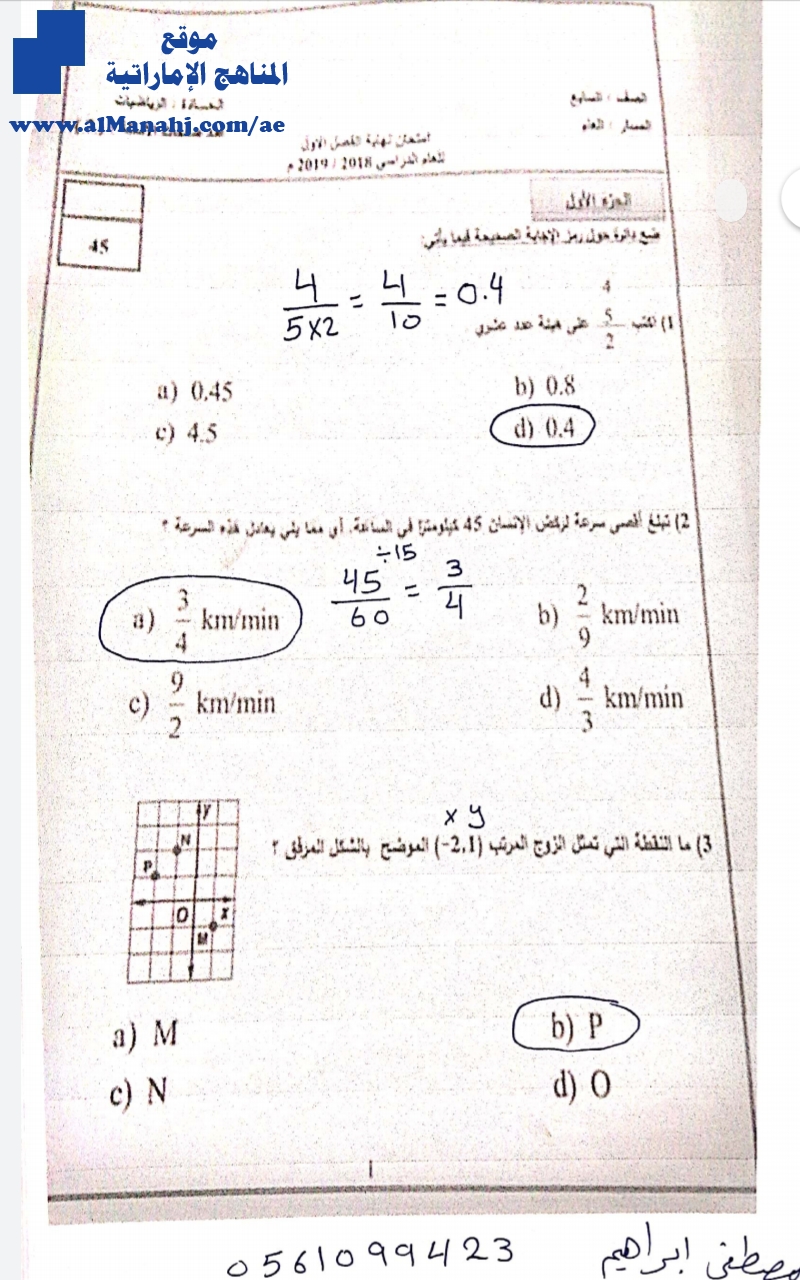 موقع
المناهج الإماراتية
www.alManahj.com/ae
الصف : السابع
المسار : العام
المادة : الرياضيات
امتحان نهاية الفصل الأول
للعام الدراسي 2018 / 2019 م
45
الجزء الأول
ضع دائرة حول رمز الإجابة الصحيحة فيما يأتي:
4/5×2 = 4/10 = 0.4
1) اكتب 4/5/2 على هيئة عدد عشري
a) 0.45
b) 0.8
c) 4.5
d) 0.4
2) تبلغ أقصى سرعة لركض الإنسان 45 كيلومترًا في الساعة. أي مما يلي يعادل هذه السرعة ؟
÷15
45/60 = 3/4
a) 3/4 km/min
b) 2/9 km/min
c) 9/2 km/min
d) 4/3 km/min
x y
3) ما النقطة التي تمثل الزوج المرتب (-2,1) الموضح بالشكل المرفق ؟
y
N
P
O x
M
a) M
b) P
c) N
d) O
1
مصطفى ابراهيم
0561099423